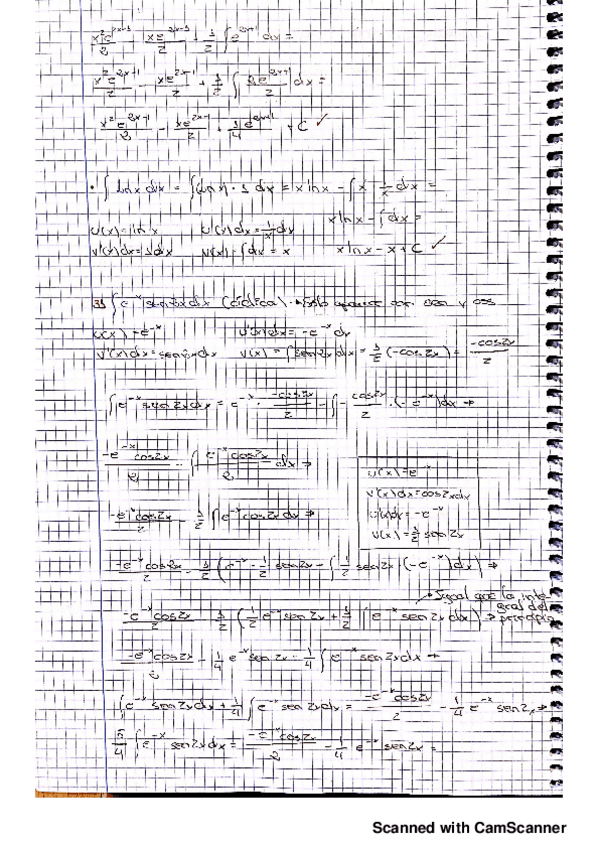 x²e^(2x-1)/2 - xe^(2x-1)/2 + 1/2 ∫ e^(2x-1) dx =
x²e^(2x-1)/2 - xe^(2x-1)/2 + 1/2 ∫ 2e^(2x-1)/2 dx =
x²e^(2x-1)/2 - xe^(2x-1)/2 + 1/4 e^(2x-1) + C ✓
• ∫ ln x dx = ∫ (ln x) · 1 dx = x ln x - ∫ x · 1/x dx =
x ln x - ∫ dx =
u(x) = ln x u'(x) dx = 1/x dx
v'(x) dx = 1 dx v(x) = ∫ dx = x x ln x - x + C ✓
∫ e^-x sen 2x dx (cíclica) → Solo aparece con sen y cos
u(x) = e^-x u'(x) dx = -e^-x dx
v'(x) dx = sen 2x dx v(x) = ∫ sen 2x dx = 1/2 (-cos 2x) = -cos 2x/2
∫ e^-x sen 2x dx = e^-x · -cos 2x/2 - ∫ - cos 2x/2 · (-e^-x) dx →
-e^-x cos 2x/2 - ∫ e^-x cos 2x/2 dx →
u(x) = e^-x
v'(x) dx = cos 2x dx
u'(x) dx = -e^-x
v(x) = 1/2 sen 2x
-e^-x cos 2x/2 - 1/2 ∫ e^-x cos 2x dx →
-e^-x cos 2x/2 - 1/2 (e^-x · 1/2 sen 2x - ∫ 1/2 sen 2x · (-e^-x) dx) →
→ Igual que la integral del principio
-e^-x cos 2x/2 - 1/2 (1/2 e^-x sen 2x + 1/2 ∫ e^-x sen 2x dx) →
-e^-x cos 2x/2 - 1/4 e^-x sen 2x - 1/4 ∫ e^-x sen 2x dx →
∫ e^-x sen 2x dx + 1/4 ∫ e^-x sen 2x dx = -e^-x cos 2x/2 - 1/4 e^-x sen 2x →
5/4 ∫ e^-x sen 2x dx = -e^-x cos 2x/2 - 1/4 e^-x sen 2x =
Scanned with CamScanner